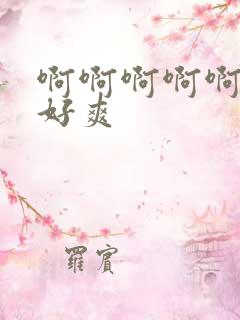 啊啊啊啊啊
好爽
羅賓